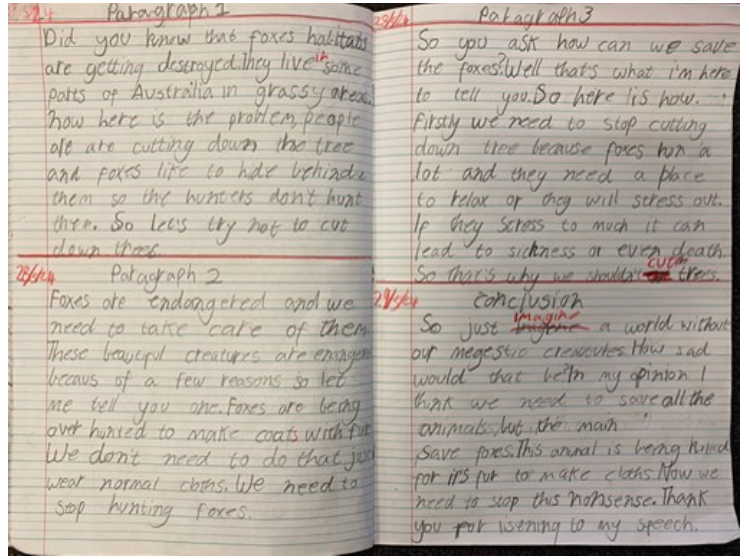 Paragraph 1
Did you know that foxes habitats
are getting desteroyed.They live in some
parts of Australia in grassy areas.
now here is the problem, people
are are cutting down the tree
and foxes like to hide behinde
them so the hunters don't hunt
them. So let's try not to cut
down trees.
28/5/24 Paragraph 2
Foxes are endangered and we
need to take care of them
These are
becaus of a few reasons so let
me tell you one. Foxes are being
over hunted to make coats with fur
We don't need to do that just
wear normal cloths. We need to
stop hunting foxes.
Paragraph 3
So you ask how can we save
the foxes? Well that's what i'm here
to tell you. So here is how.
firstly we need to stop cutting
down tree because foxes run a
lot and they need a place
to relax or they will stress out.
If they stress to much it can
lead to sickness or even death.
So that's why we shouldn't cut trees.
29/5/24 conclusion
So just imagine a world without
our megestic creatures. How sad
would that be? In my opinion I
think we need to save all the
animals, but the main
save foxes. This animal is being killed
for it's fur to make cloths. Now we
need to stop this nonsense. Thank
you for lisening to my speech.